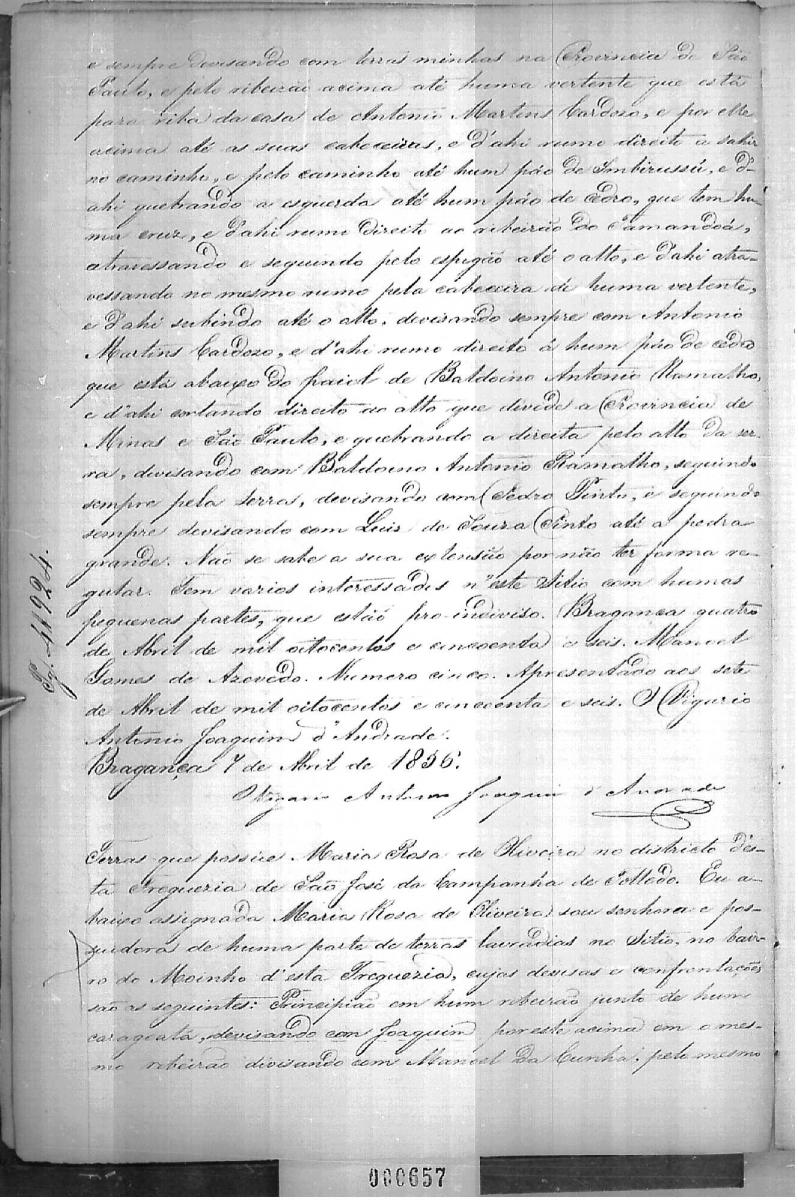 e sempre devisando com terras minhas na Provincia de São
Paulo, e pelo ribeirão acima até huma vertente que está
para riba da casa de Antonio Martins Cardozo, e por elle
acima até as suas cabeceiras, e d'ahi rumo direito a sahir
no caminho, e pelo caminho até hum páo de Imbirussú, e d'-
ahi quebrando a esquerda até hum páo de cedro, que tem hu-
ma cruz, e d'ahi rumo direito ao ribeirão do Tamandoá,
atravessando e seguindo pelo espigão até o alto, e d'ahi atra-
vessando no mesmo rumo pela cabeceira de huma vertente,
e d'ahi subindo até o alto, devisando sempre com Antonio
Martins Cardozo, e d'ahi rumo direito á hum páo de cedro
que está abaixo do paiol de Baldoino Antonio Ramalho,
e d'ahi cortando direito ao alto que divide a Provincia de
Minas e São Paulo, e quebrando a direita pelo alto da ser-
ra, devisando com Baldoino Antonio Ramalho, seguindo
sempre pela serra, devisando com Pedro Pinto, e seguindo
sempre devisando com Luis de Souza Pinto até a pedra
grande. Não se sabe a sua extensão por não ter forma re-
gular. Tem varios interessados n'este Sitio com humas
pequenas partes, que estão pro-indiviso. Bragança quatro
de Abril de mil oitocentos e cincoenta e seis. Manoel
Gomes de Azevedo. Numero cinco. Apresentado aos sete
de Abril de mil oitocentos e cincoenta e seis. O Vigario
Antonio Joaquim d'Andrade.
Bragança 7 de Abril de 1856.
O Vigario Antonio Joaquim d'Andrade
Terras que possue Maria Rosa de Oliveira no districto d'es-
ta Freguezia de São José da Campanha de Tolledo. Eu a-
baixo assignada Maria Rosa de Oliveira sou senhora e pos-
suidora de huma parte de terras lavradias no Sitio, no bair-
ro do Moinho d'esta Freguezia, cujas devisas e confrontações
são as seguintes: Principião em hum ribeirão junto de hum
caragoatá, devisando con Joaquim por este acima em o mes-
mo ribeirão divisando com Manoel da Cunha, pelo mesmo
000657